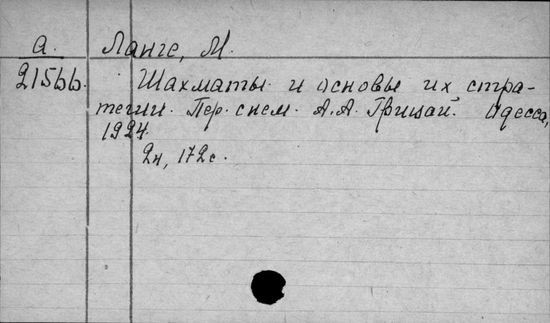 а. Ланге, М.
21566. Шахматы и основы их стра-
тегии. Пер. с нем. А.А. Грицай. Одесса,
1924.
2н, 172с.